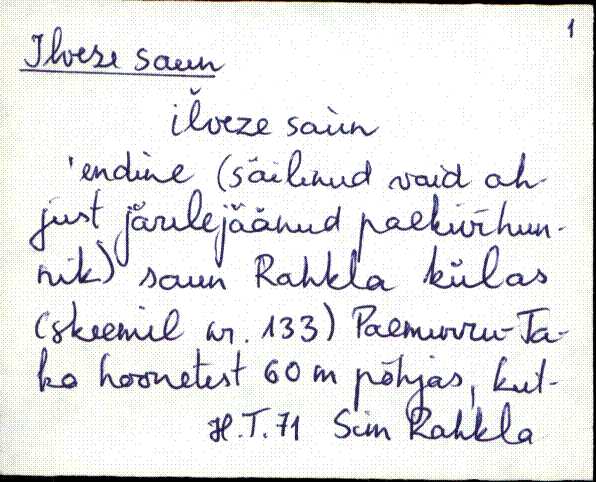 1
Ilveze saun
ĭlveze saùn
'endine (säilinud vaid ah-
just järelejäänud paekivihun-
nik) saun Rahkla külas
(skeemil nr. 133) Paemurru-Ta-
ko hoonetest 60 m põhjas, kut-
H.T. 71 Sim Rahkla